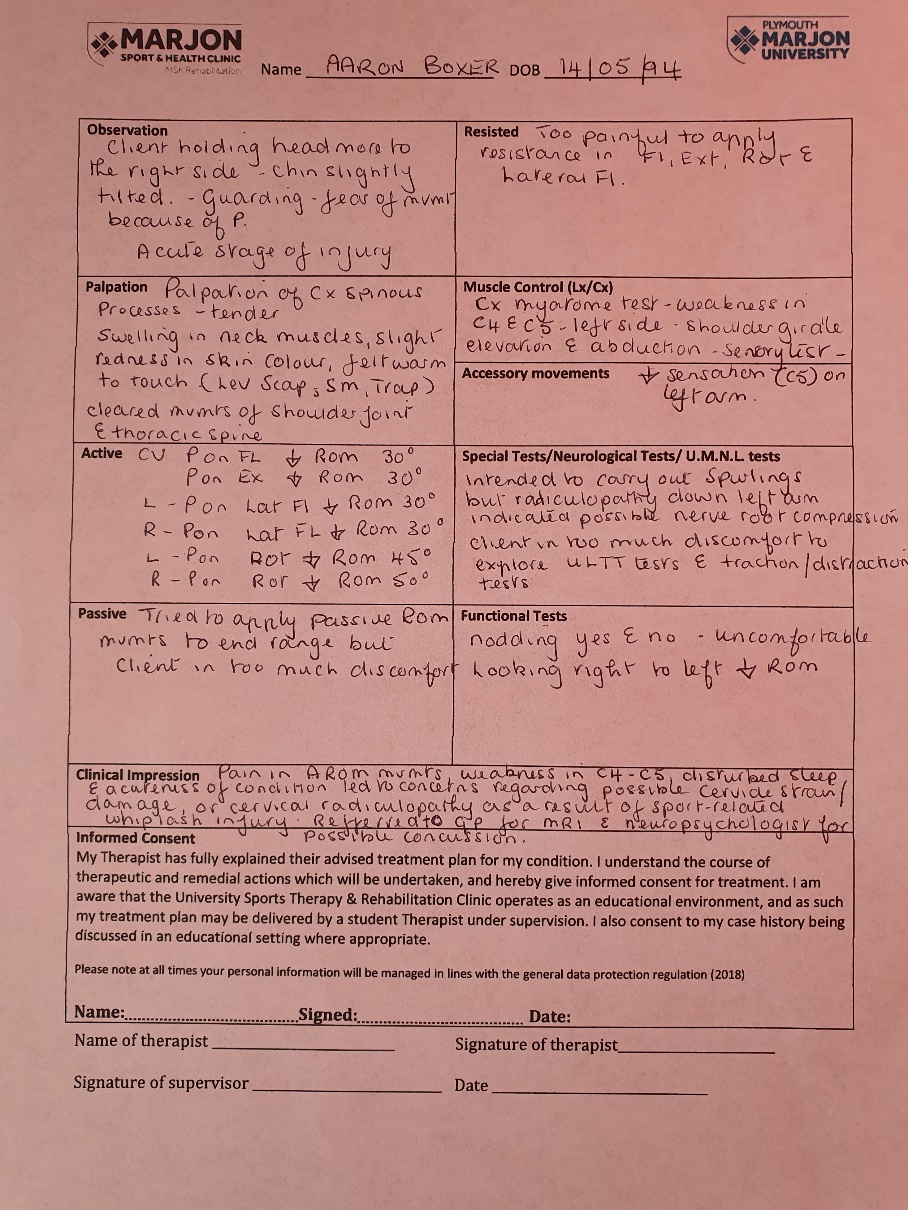 MARJON
SPORT & HEALTH CLINIC
MSK Rehabilitation
Name AARON BOXER DOB 14/05/94
PLYMOUTH
MARJON
UNIVERSITY
Observation
Client holding head more to
the right side - Chin slightly
tilted. - Guarding - fear of mvmt
because of P.
Acute stage of injury
Resisted Too painful to apply
resistance in Fl, Ext, Rot &
Lateral Fl.
Palpation Palpation of Cx Spinous
Processes - tender
Swelling in neck muscles, slight
redness in skin colour, felt warm
to touch (Lev Scap, Sm, Trap)
cleared mvmts of shoulder joint
& thoracic spine
Muscle Control (Lx/Cx)
Cx myotome test - weakness in
C4 & C5 - left side - shoulder girdle
elevation & abduction - sensory test -
Accessory movements ↓ sensation (C5) on
left arm.
Active CV P on FL ↓ Rom 30°
P on Ex ↓ Rom 30°
L - P on Lat Fl ↓ Rom 30°
R - P on Lat FL ↓ Rom 30°
L - P on Rot ↓ Rom 45°
R - P on Rot ↓ Rom 50°
Special Tests/Neurological Tests/ U.M.N.L tests
Intended to carry out Spurlings
but radiculopathy down left arm
indicated possible nerve root compression
client in too much discomfort to
explore ULTT tests & traction/distraction
tests
Passive Tried to apply passive Rom
mvmts to end range but
Client in too much discomfort
Functional Tests
nodding yes & no - uncomfortable
Looking right to left ↓ Rom
Clinical Impression Pain in AROM mvmts, weakness in C4-C5, disturbed sleep
& acuteness of condition led to concerns regarding possible Cervide strain/
damage, or cervical radiculopathy as a result of sport-related
whiplash injury. Referred to GP for MRI & neuropsychologist for
possible concussion.
Informed Consent
My Therapist has fully explained their advised treatment plan for my condition. I understand the course of
therapeutic and remedial actions which will be undertaken, and hereby give informed consent for treatment. I am
aware that the University Sports Therapy & Rehabilitation Clinic operates as an educational environment, and as such
my treatment plan may be delivered by a student Therapist under supervision. I also consent to my case history being
discussed in an educational setting where appropriate.
Please note at all times your personal information will be managed in lines with the general data protection regulation (2018)
Name: Signed: Date:
Name of therapist Signature of therapist
Signature of supervisor Date